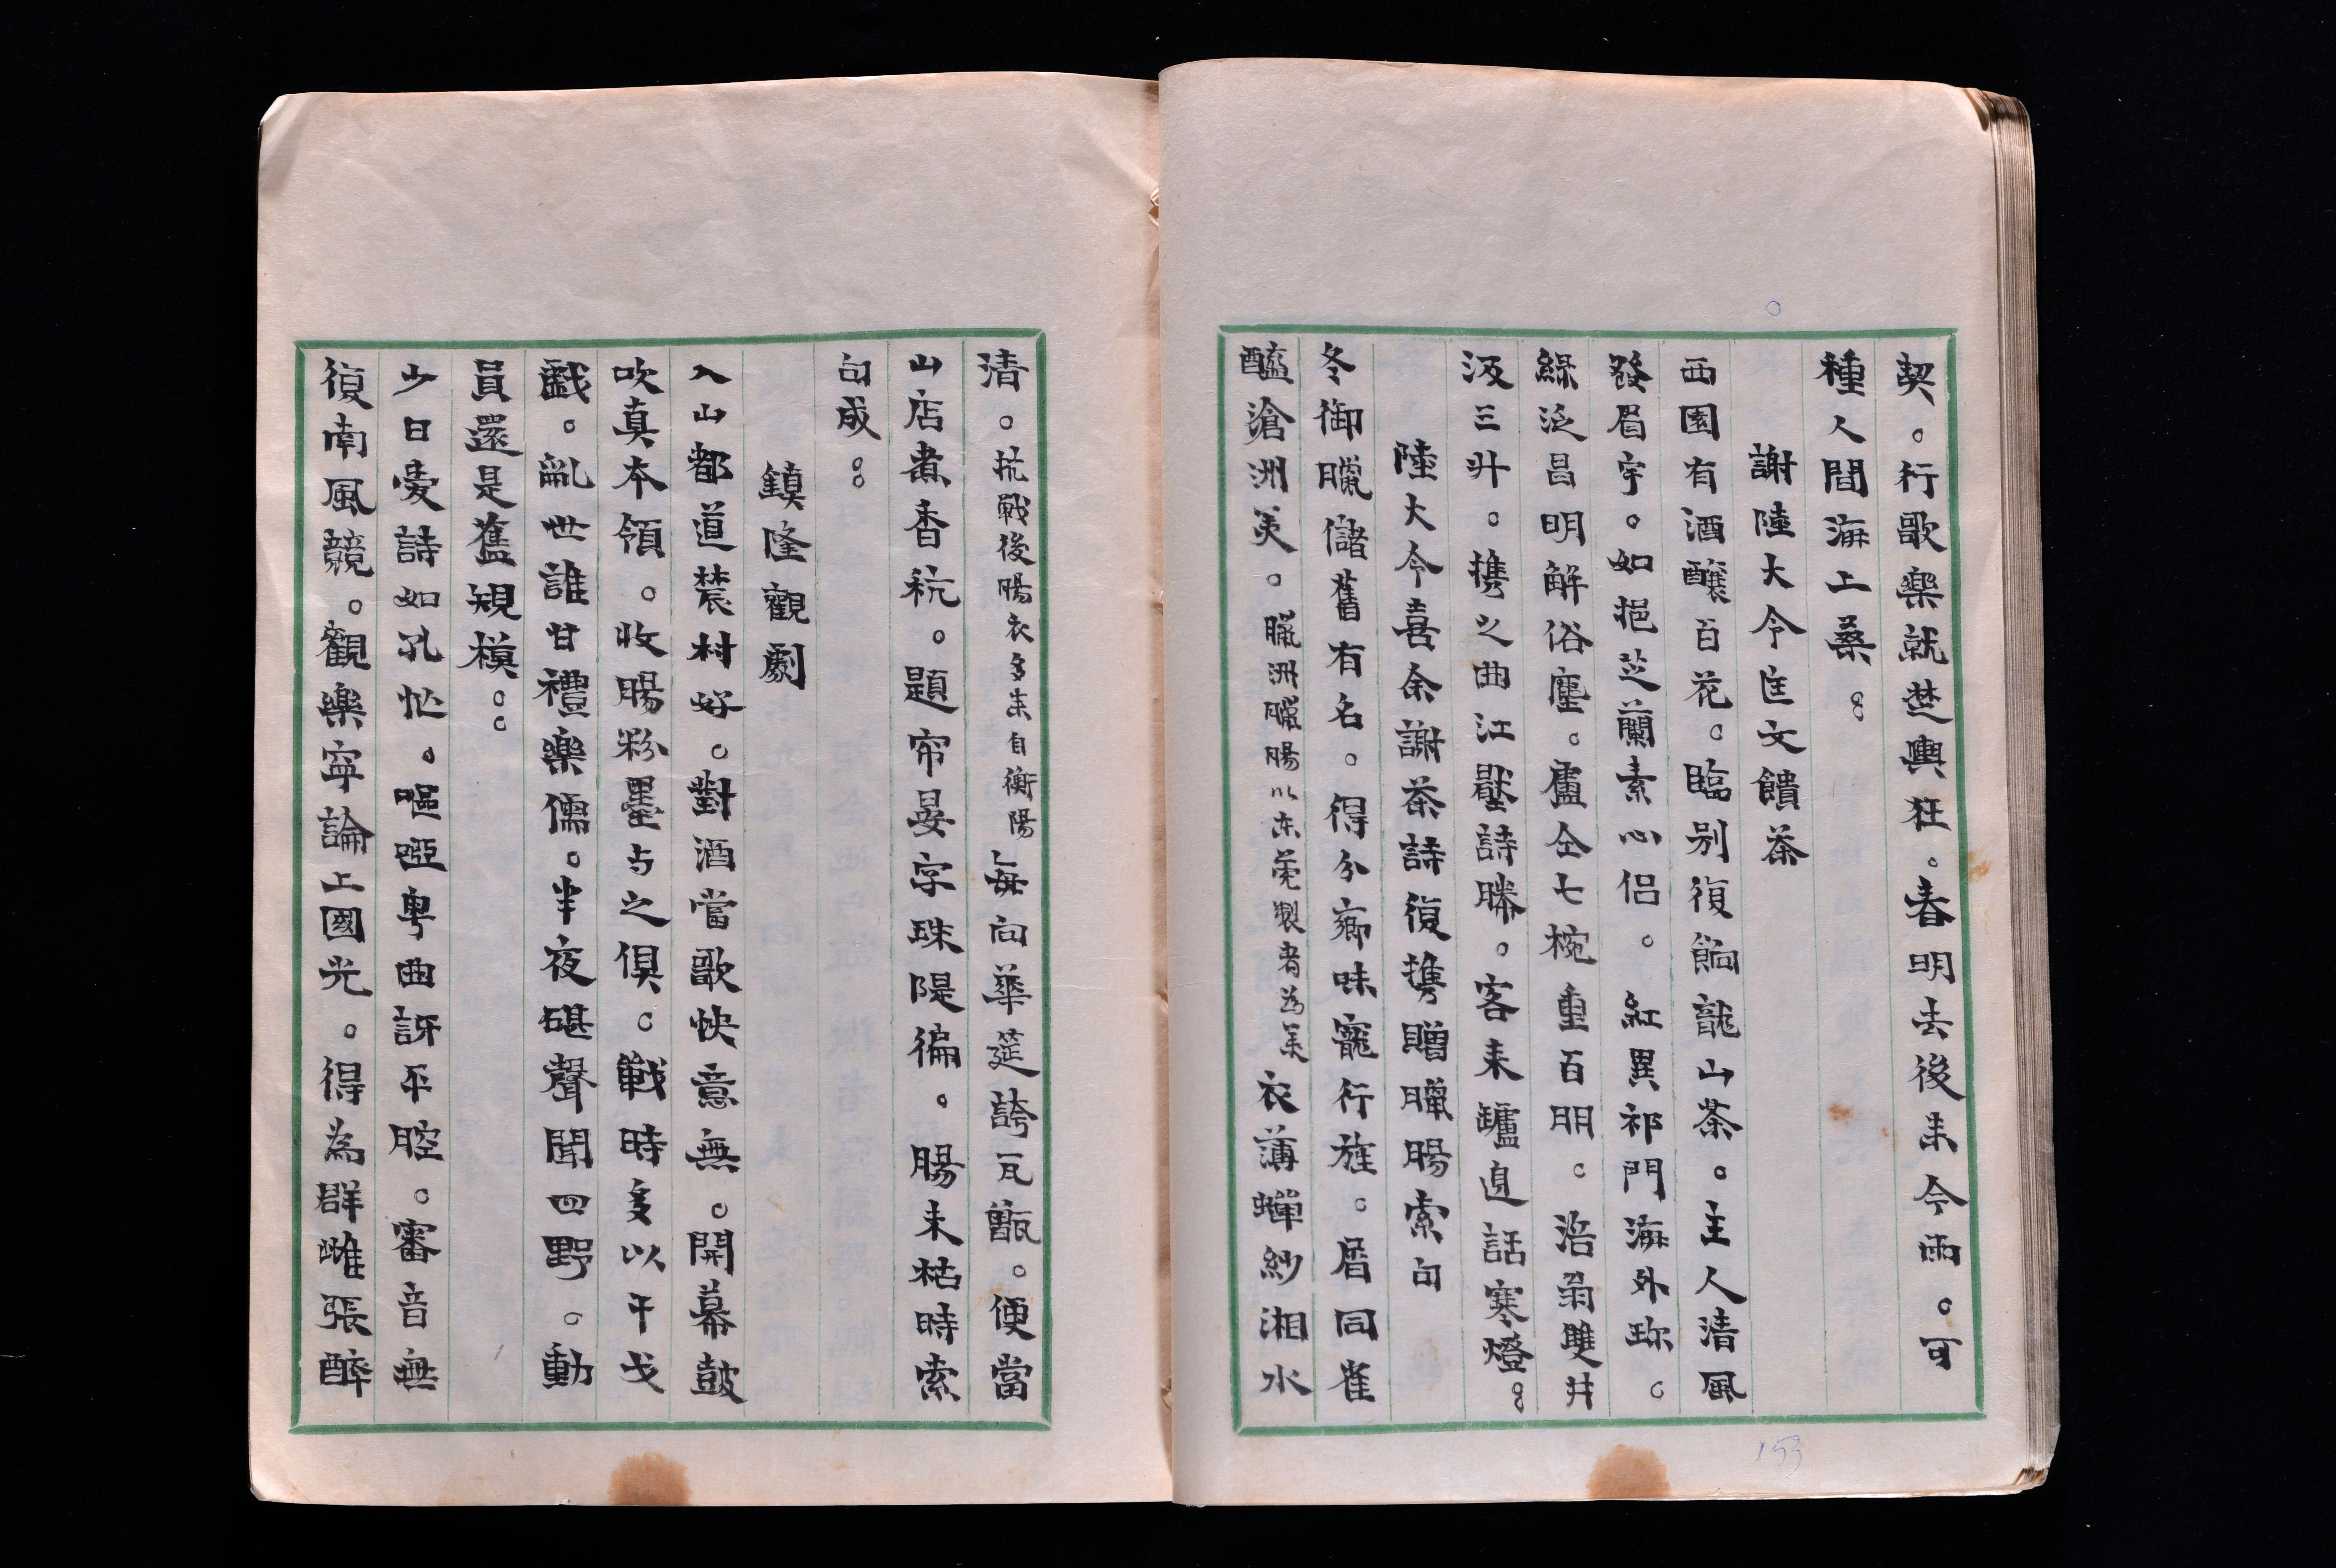 契。行歌樂就楚輿狂。春明去後来今雨。可
種人間海上桑。
謝陸大令匡文饋茶
西園有酒釀百花。臨别復餉龍山茶。主人清風
發眉宇。如挹芝蘭素心侣。紅異祁門海外珎。
綠泛昌明解俗塵。盧仝七椀重百朋。涪翁雙井
汲三升。攜之曲江壓詩勝。客来罏邊話寒燈。
陸大令喜余謝茶詩復攜贈臘腸索句
冬御臘儲舊有名。得分鄉味寵行旌。厝同雀
醢滄洲美。臘洲臘腸以东莞製者為美衣薄蟬紗湘水
清。抗戰後腸衣多来自衡陽每向華筵誇瓦甑。便當
山店煮香秔。題帘晏字珠隄徧。腸未枯時索
句成。
鎮隆觀劇
入山都道農村好。對酒當歌快意無。開幕鼓
吹真本領。收腸粉墨与之俱。戰時多以干戈
戲。亂世誰甘禮樂儒。半夜碪聲聞四野。動
員還是舊規模。
少日愛詩如孔忙。嘔啞粤曲訝平腔。審音無
復南風競。觀樂寧論上國光。得為群雌張醉
153